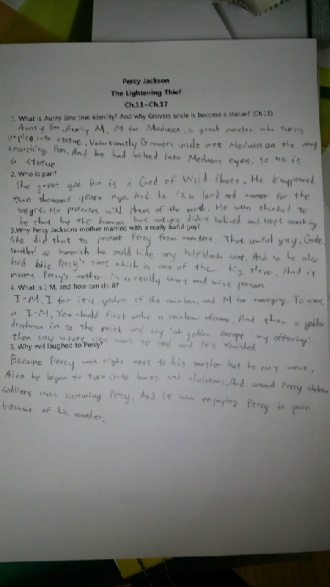 Percy Jackson
The Lightening Thief
Ch.11~Ch.17
1. What is Aunty Ems true identity? And why Grovers uncle is become a statue? (Ch.11)
Aunty Em, Aunty M, M for Medusa, a great monster who turns
people into statue. Unfortunatly Grovers uncle met Medusa on the way
searching Pan, And he had looked into Medusas eyes, so he is
a statue
2. Who is pan?
The great god Pan is a God of Wild Places. He disappeared
two thousand years ago. And he is a lord and master for the
satyrs. He protects wild places of the earth. He was thinked to
be dead by the human but satyrs didn't believed and kept searching
3. Why Percy Jacksons mother married with a really awful guy?
She did that to protect Percy from monsters. That awful guy, Gabe,
smelled so humanish he could hide any half-bloods scent. And so he also
hid Percy's scent which is one of the big three. And it
means Percy's mother is a really smart and wise person
4. What is I-M, and how can do it?
I-M, I for iris, goddess of the rainbow, and M for message. To use
a I-M, You should first make a rainbow of course. And throw a golden
drachma in to the mist and say 'oh goddess accept my offering'
then say where you want to send and it's finished
5. Why evil laughed to Percy?
Because Percy was right next to his mother but he can't move.
Also he began to turn into bones and skeletons. And around Percy skeleton
soldiers was capturing Percy. And it was enjoying Percy in pain
because of his mother.